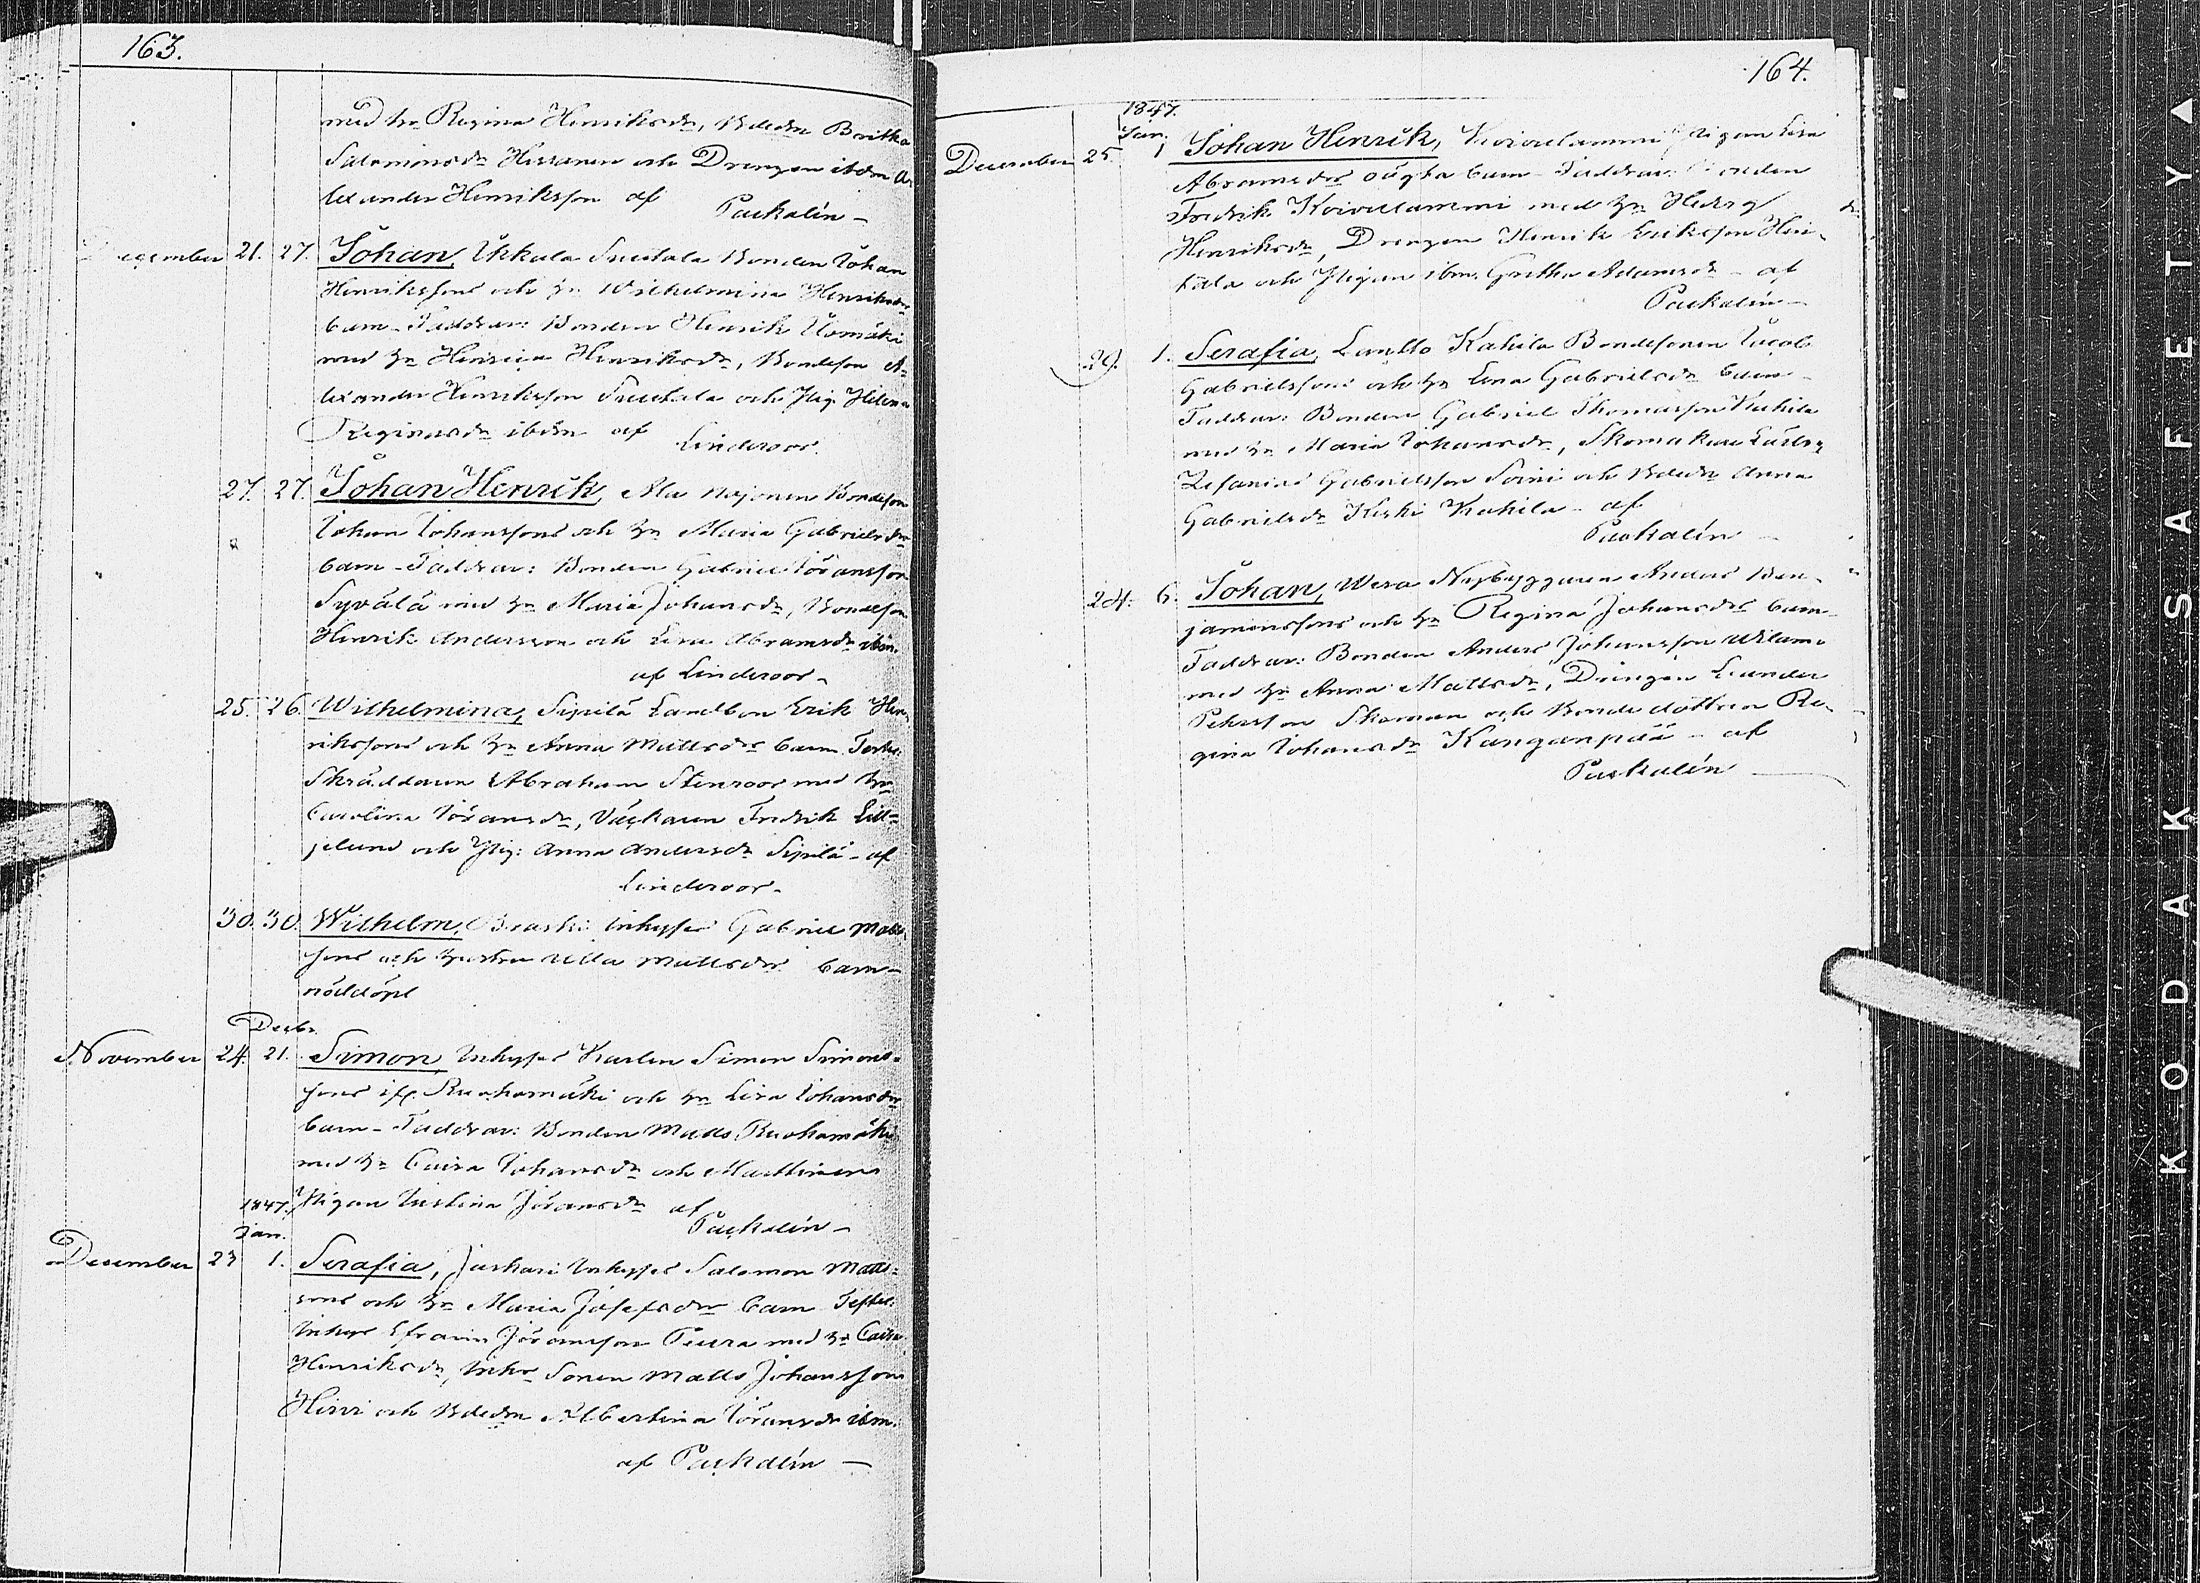 163.
med hn Regina Henriksdr, Bdedn Britha
Salomonsdr Hissanen och Drengen ibdm A-
lexander Henriksson af Paskalin –
December 21. 27. Johan, Ukkola Bonden Johan
Henrikssons och hn Wilhelmina Henriksdrs
barn – Faddrar: Bonden Henrik
med hn Henrica Henriksdr, Bondeson A-
lexander Henriksson och Pig. Helena
Reginasdr ibdm af Linderoos.
27. 27. Johan Henrik, Ala Nojonen Bondeson
Johan Johanssons och hn Maria Gabrielsdrs
barn – Faddrar: Bonden Gabriel Göransson
Syvälä med hn Maria Johansdr, Bondeson
Henrik Andersson och Lisa Abramsdr ibm.
af Linderoos –
25. 26. Wilhelmina, Sipilä Landbon Erik Hen-
rikssons och hn Anna Mattsdrs barn
Skräddaren Abraham Stenroos med hn
Carolina Göransdr, Väfkaren Fredrik Lill-
jelund och Pig: Anna Andersdr Sipilä – af
Linderoos –
30. 30. Wilhelm, Inhyses Gabriel Matts-
sons och hustru Ulla Mattsdrs barn –
nöddöpt
Decbr.
November 24. 21. Simon, Inhyses Karlen Simon Simons-
sons ifr. Ruohomäki och hn Lisa Johansdrs
barn – Faddrar: Bonden Matts Ruohomäki
med hn Caisa Johansdr och Marttinen
Pigan Justina Göransdr af
Paskalin –
1847.
Jan.
December 23 1. Serafia, Inhyses Salomon Matts-
sons och hn Maria Josefsdrs barn
Inhys Efraim Göransson Peura med hn Caisa
Henriksdr, Inhs Sonen Matts Johansson
Hirvi och Bdedn Albertina Göransdr ibm.
af Paskalin –
164.
1847.
Jan.
December 25 1 Johan Henrik, Koivulammi Pigan Lisa
Abramsdrs oägta barn – Faddrar: Bonden
Fredrik Koivulammi med hn Hedvig
Henriksdr, Drengen Henrik Eriksson Hei-
kala och Pigan ibm. Gretha Adamsdr – af
Paskalin –
29. 1. Serafia, Lantto Kahila Bondesonen Jacob
Gabrielssons och hn Lena Gabrielsdrs barn –
Faddrar: Bonden Gabriel Thomasson Kahila
med hn Maria Johansdr, Skomakare Lärl:
Zefanias Gabrielsson Soini och Bdedn Anna
Gabrielsdr Keski Kahila – af
Paskalin –
24. 6. Johan, Wera Nybyggaren Anders Ben-
jaminssons och hn Regina Johansdrs barn
Faddrar: Bonden Anders Johansson
med hn Anna Mattsdr, Drängen Leander
Pehrsson och Bonde dottren Re-
gina Johansdr Kanganpää – af
Paskalin
KODAK SAFETY ▲